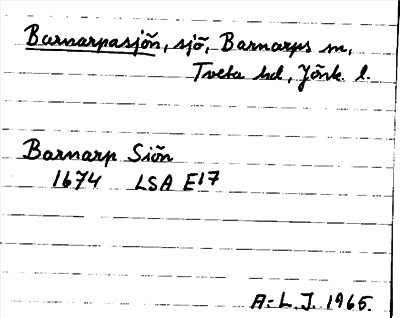 Barnarpasjön, sjö, Barnarps sn,
Tveta hd, Jönk. l.
Barnarp Siön
1674 LSA E17
A-L. J. 1965.